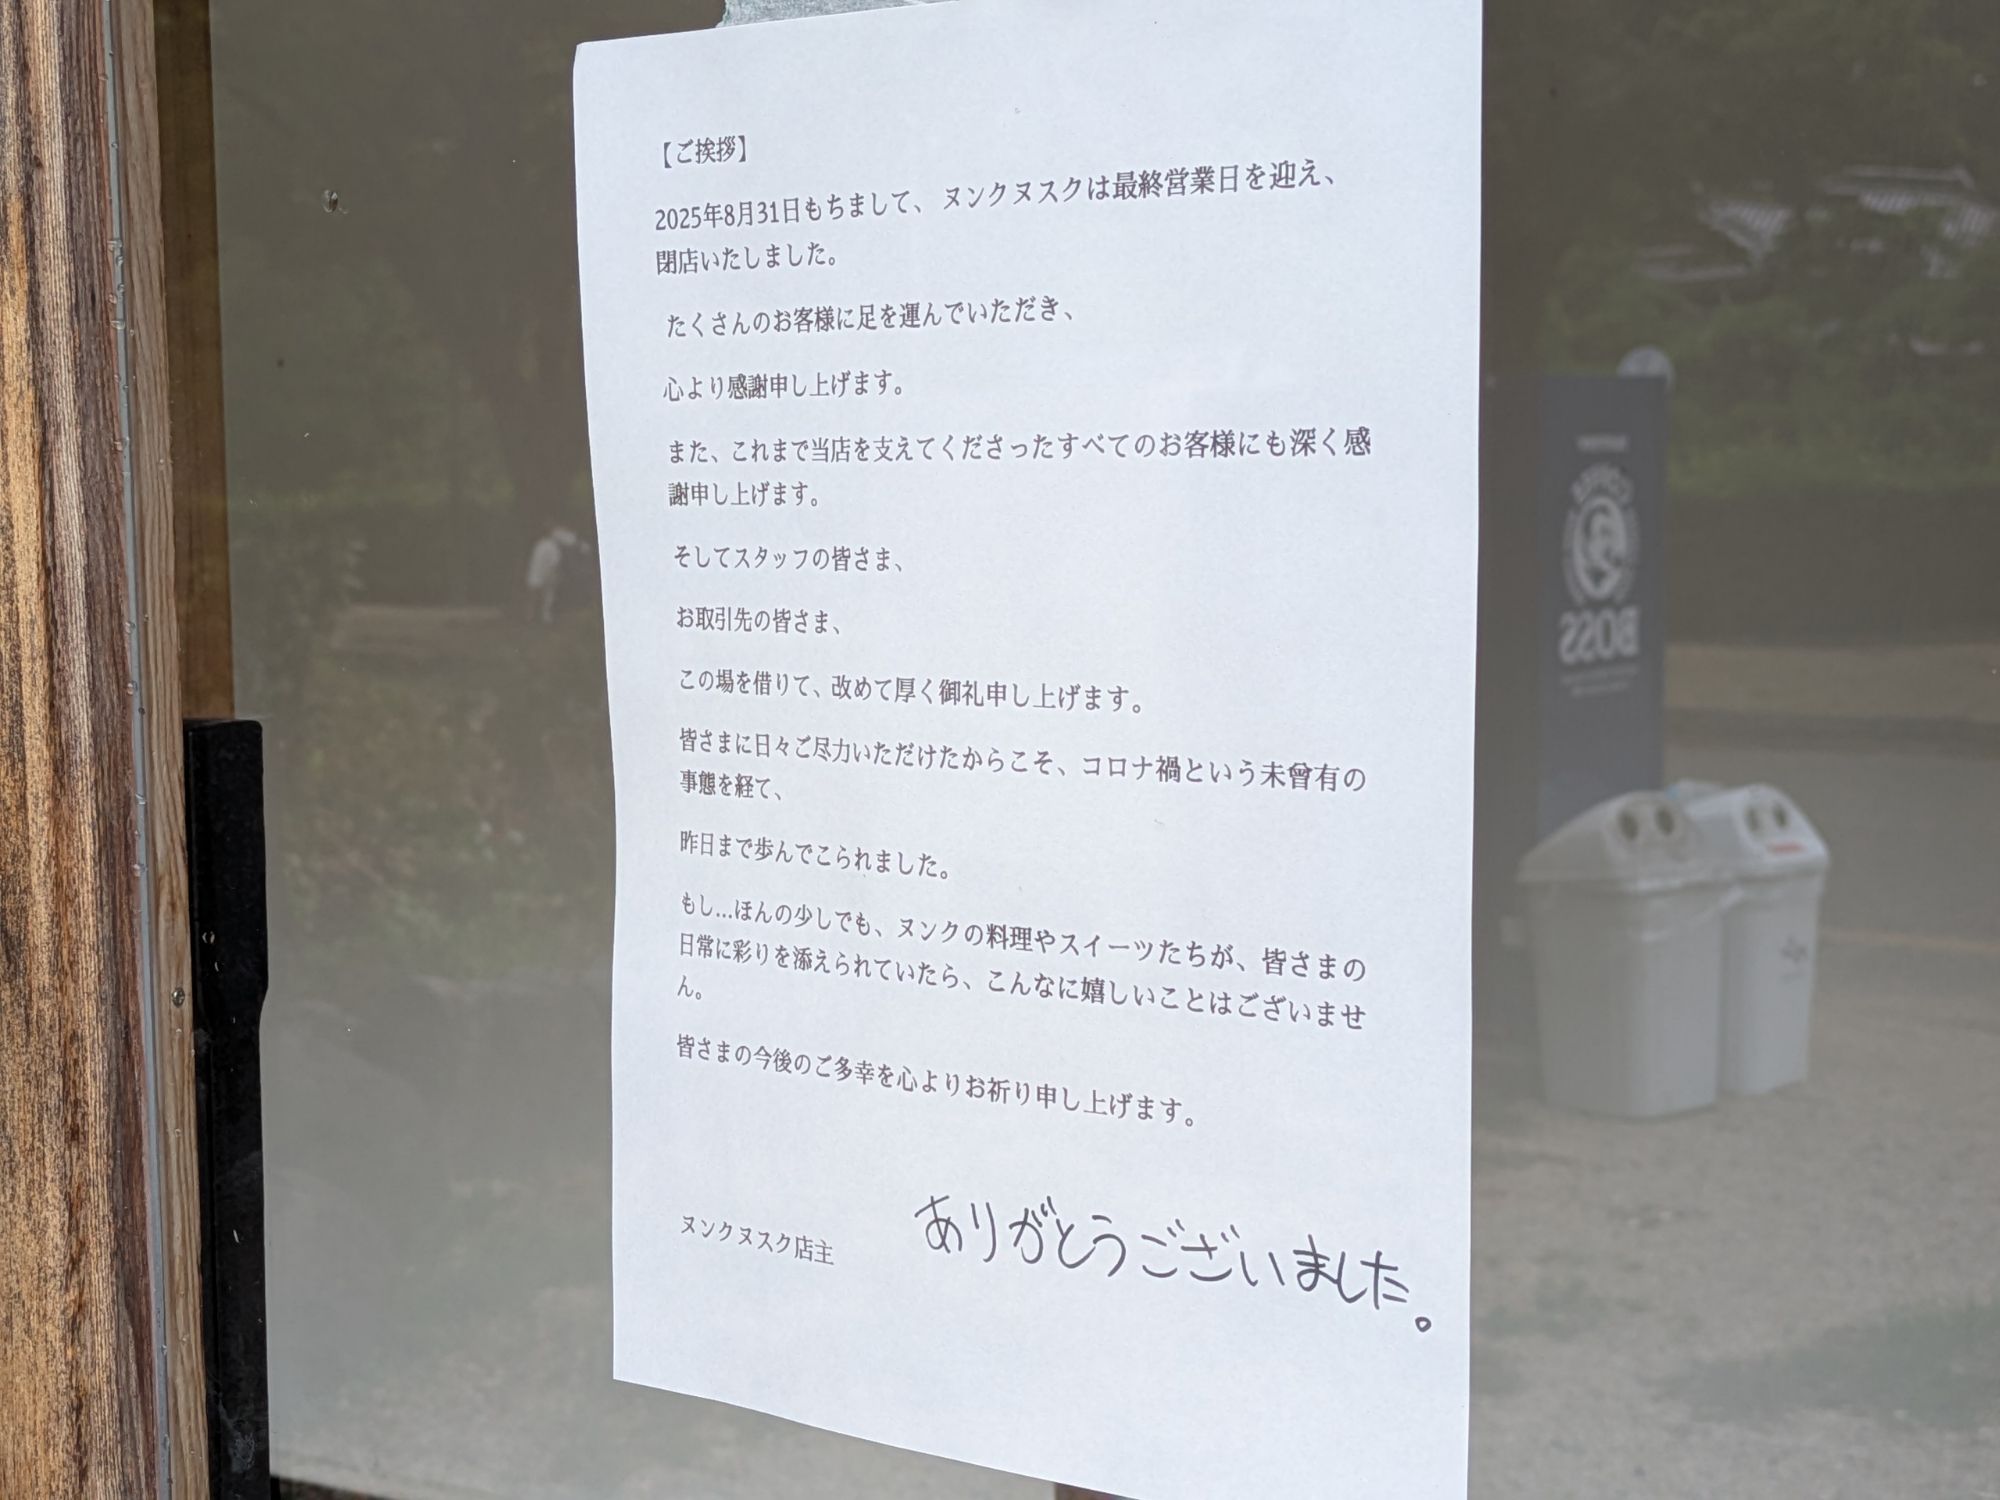 【ご挨拶】
2025年8月31日もちまして、ヌンクヌスクは最終営業日を迎え、
閉店いたしました。
たくさんのお客様に足を運んでいただき、
心より感謝申し上げます。
また、これまで当店を支えてくださったすべてのお客様にも深く感
謝申し上げます。
そしてスタッフの皆さま、
お取引先の皆さま、
この場を借りて、改めて厚く御礼申し上げます。
皆さまに日々ご尽力いただけたからこそ、コロナ禍という未曾有の
事態を経て、
昨日まで歩んでこられました。
もし...ほんの少しでも、ヌンクの料理やスイーツたちが、皆さまの
日常に彩りを添えられていたら、こんなに嬉しいことはございませ
ん。
皆さまの今後のご多幸を心よりお祈り申し上げます。
ヌンクヌスク店主
ありがとうございました。
BOSS